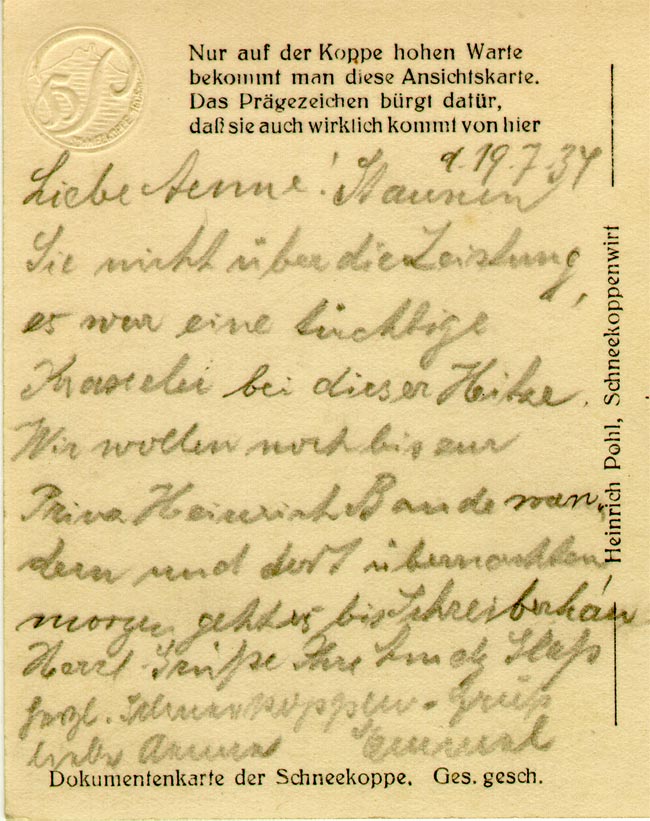 Nur auf der Koppe hohen Warte
bekommt man diese Ansichtskarte.
Das Prägezeichen bürgt datür,
daß sie auch wirklich kommt von hier
d. 19.7.34
Liebe Aenne! Staunen
Sie nicht über die Leistung,
es war eine tüchtige
Kraxelei bei dieser Hitze.
Wir wollen noch bis zur
Prinz Heinrich Baude wan-
dern und dort übernachten
morgen geht es bis Schreiberhau
Herzl. Grüße Ihre
herzl. Schneekoppen-Gruß
liebe
Dokumentenkarte der Schneekoppe. Ges. gesch.
Heinrich Pohl, Schneekoppenwirt